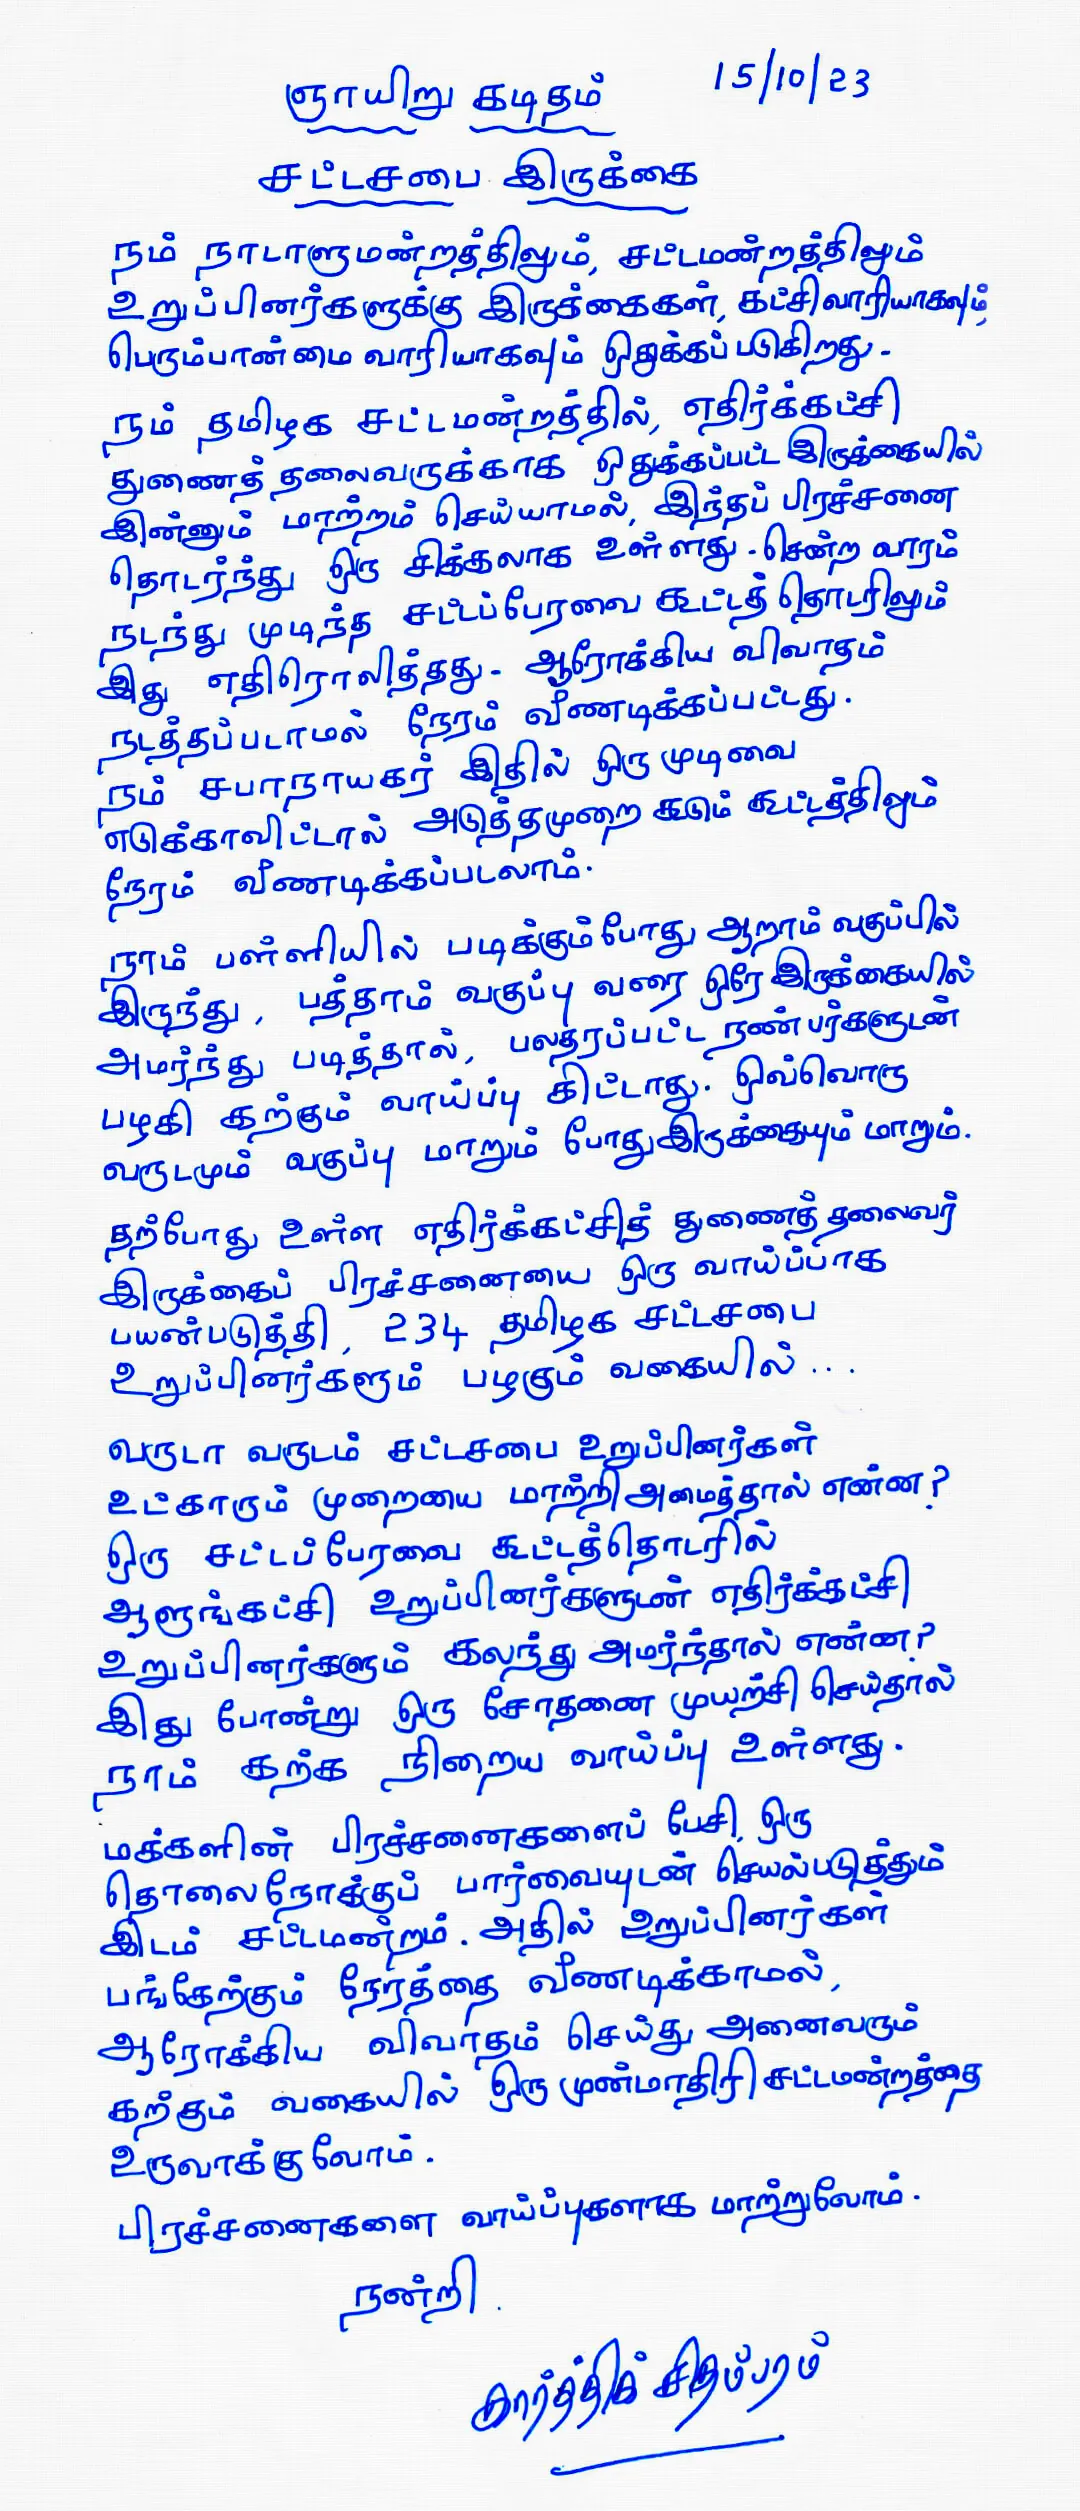 ஞாயிறு கடிதம் 15/10/23
சட்டசபை இருக்கை
நம் நாடாளுமன்றத்திலும், சட்டமன்றத்திலும்
உறுப்பினர்களுக்கு இருக்கைகள், கட்சிவாரியாகவும்,
பெரும்பான்மை வாரியாகவும் ஒதுக்கப்படுகிறது.
நம் தமிழக சட்டமன்றத்தில், எதிர்க்கட்சி
துணைத் தலைவருக்காக ஒதுக்கப்பட்ட இருக்கையில்
இன்னும் மாற்றம் செய்யாமல், இந்தப் பிரச்சனை
தொடர்ந்து ஒரு சிக்கலாக உள்ளது. சென்ற வாரம்
நடந்து முடிந்த சட்டப்பேரவை கூட்டத் தொடரிலும்
இது எதிரொலித்தது. ஆரோக்கிய விவாதம்
நடத்தப்படாமல் நேரம் வீணடிக்கப்பட்டது.
நம் சபாநாயகர் இதில் ஒரு முடிவை
எடுக்காவிட்டால் அடுத்தமுறை கூடும் கூட்டத்திலும்
நேரம் வீணடிக்கப்படலாம்.
நாம் பள்ளியில் படிக்கும்போது ஆறாம் வகுப்பில்
இருந்து, பத்தாம் வகுப்பு வரை ஒரே இருக்கையில்
அமர்ந்து படித்தால், பலதரப்பட்ட நண்பர்களுடன்
பழகி கற்கும் வாய்ப்பு கிட்டாது. ஒவ்வொரு
வருடமும் வகுப்பு மாறும் போது இருக்கையும் மாறும்.
தற்போது உள்ள எதிர்க்கட்சித் துணைத் தலைவர்
இருக்கைப் பிரச்சனையை ஒரு வாய்ப்பாக
பயன்படுத்தி, 234 தமிழக சட்டசபை
உறுப்பினர்களும் பழகும் வகையில் ...
வருடா வருடம் சட்டசபை உறுப்பினர்கள்
உட்காரும் முறையை மாற்றி அமைத்தால் என்ன?
ஒரு சட்டப்பேரவை கூட்டத்தொடரில்
ஆளுங்கட்சி உறுப்பினர்களுடன் எதிர்க்கட்சி
உறுப்பினர்களும் கலந்து அமர்ந்தால் என்ன?
இது போன்று ஒரு சோதனை முயற்சி செய்தால்
நாம் கற்க நிறைய வாய்ப்பு உள்ளது.
மக்களின் பிரச்சனைகளைப் பேசி, ஒரு
தொலைநோக்குப் பார்வையுடன் செயல்படுத்தும்
இடம் சட்டமன்றம். அதில் உறுப்பினர்கள்
பங்கேற்கும் நேரத்தை வீணடிக்காமல்,
ஆரோக்கிய விவாதம் செய்து அனைவரும்
கற்கும் வகையில் ஒரு முன்மாதிரி சட்டமன்றத்தை
உருவாக்குவோம்.
பிரச்சனைகளை வாய்ப்புகளாக மாற்றுவோம்.
நன்றி.
கார்த்திக் சிதம்பரம்